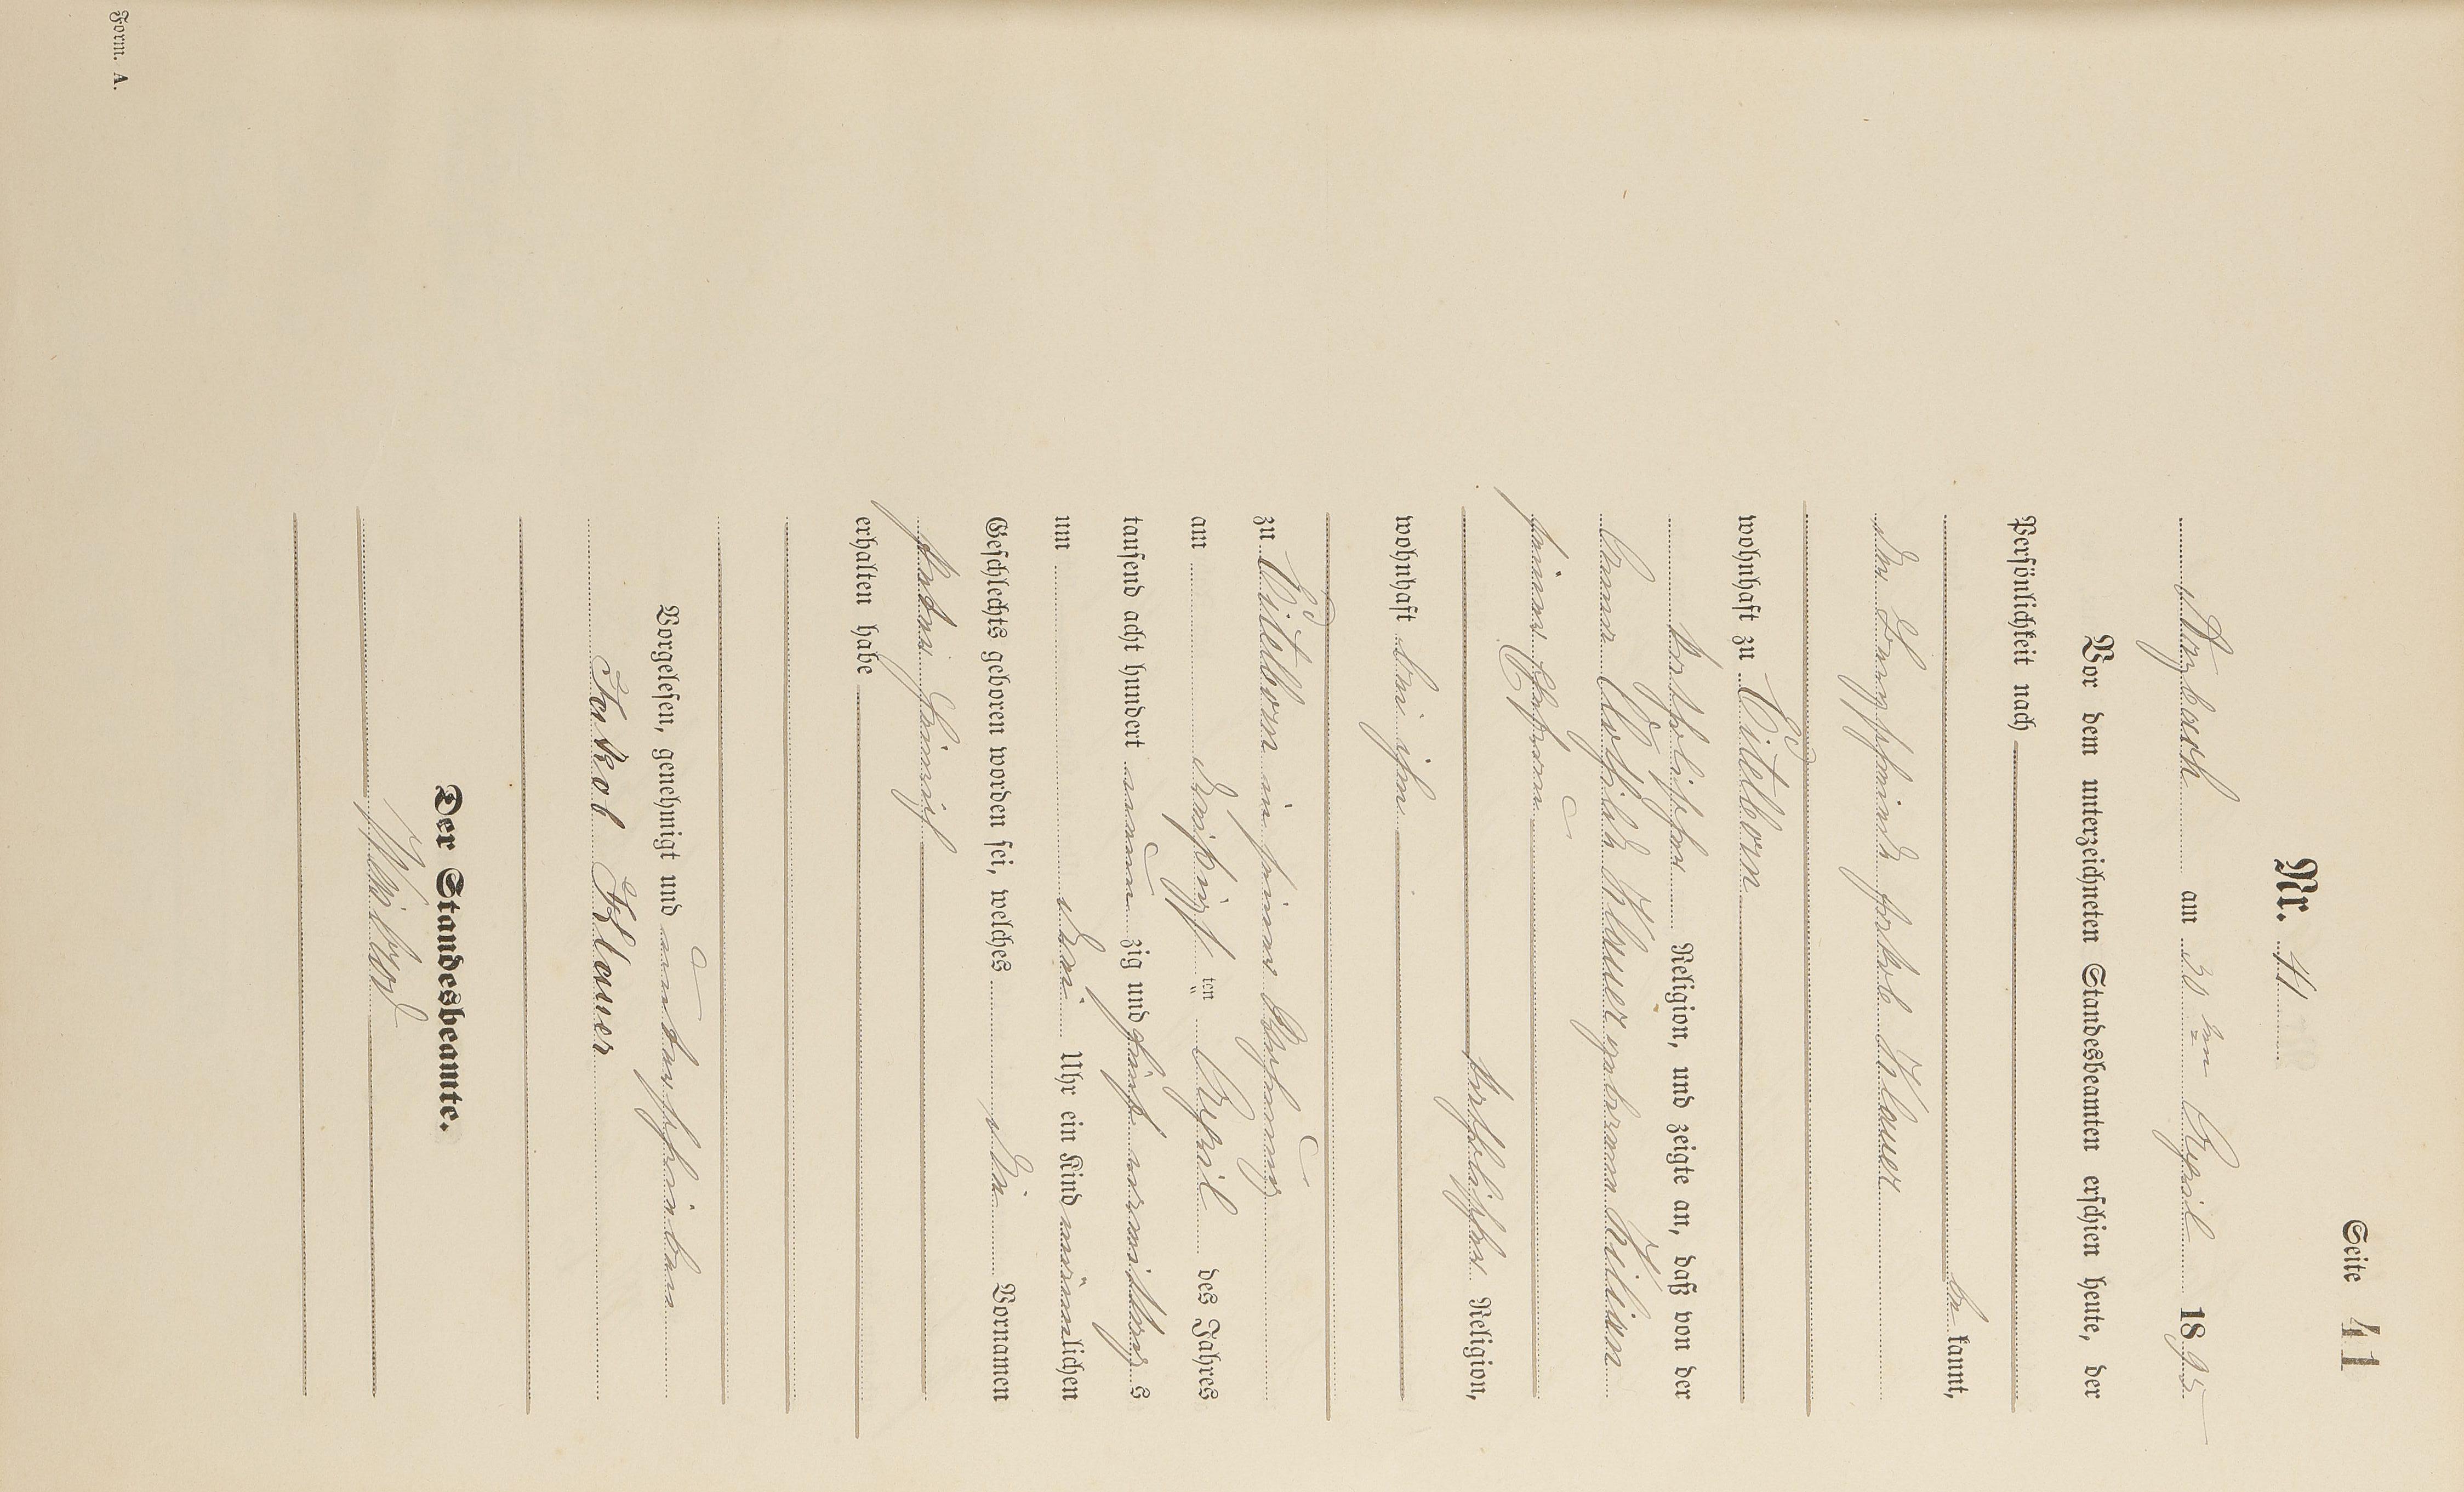 Seite 41
Nr. 41
Arzbach am 30ten April 1895
Vor dem unterzeichneten Standesbeamten erschien heute, der
Persönlichkeit nach
be kannt,
der Jakob Klauer
wohnhaft zu Eitelborn
katholischer Religion, und zeigte an, daß von der
Anna Klothilde Klauer geborenen Kilian
seiner Ehefrau
katholischer Religion,
wohnhaft bei ihm
zu Eitelborn in seiner Wohnung
am dreißigst ten April des Jahres
tausend acht hundert neun zig und fünf vormittag s
um drei Uhr ein Kind männlichen
Geschlechts geboren worden sei, welches die Vornamen
Peter Heinrich
erhalten habe
Vorgelesen, genehmigt und unterschrieben
Jakob Klauer
Der Standesbeamte.
Form. A.